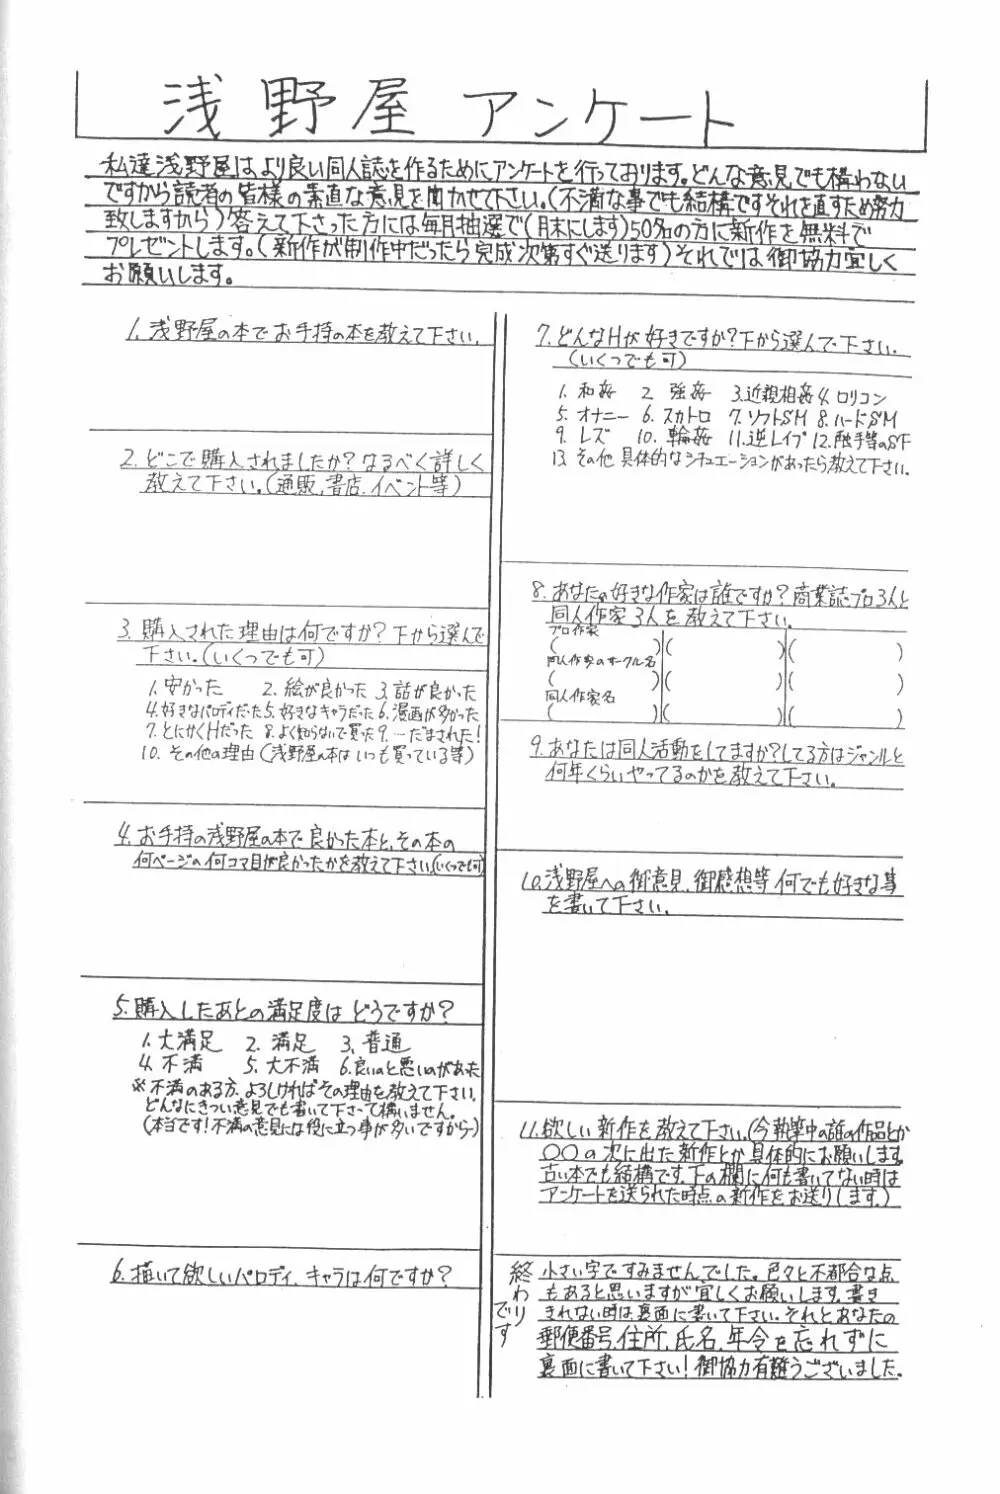 浅野屋 アンケート
私達浅野屋はより良い同人誌を作るためにアンケートを行っております。どんな意見でも構わない
ですから読者の皆様の素直な意見を聞かせて下さい。(不満な事でも結構ですそれを直すため努力
致しますから)答えて下さった方には毎月抽選で(月末にします)50名の方に新作を無料で
プレゼントします。(新作が制作中だったら完成次第すぐ送ります)それでは御協力宜しく
お願いします。
1. 浅野屋の本でお手持の本を教えて下さい。
2. どこで購入されましたか?なるべく詳しく
教えて下さい。(通販、書店、イベント等)
3. 購入された理由は何ですか?下から選んで
下さい。(いくつでも可)
1. 安かった 2. 絵が良かった 3. 話が良かった
4. 好きなパロディだった 5. 好きなキャラだった 6. 漫画が多かった
7. とにかくHだった 8. よく知らないで買った 9. …だまされた!
10. その他の理由(浅野屋の本はいつも買っている等)
4. お手持の浅野屋の本で良かった本と、その本の
何ページの何コマ目が良かったかを教えて下さい。(いくつでも可)
5. 購入したあとの満足度はどうですか?
1. 大満足 2. 満足 3. 普通
4. 不満 5. 大不満 6. 良いのと悪いのがあった
※不満のある方、よろしければその理由を教えて下さい。
どんなにきつい意見でも書いて下さって構いません。
(本当です!不満の意見には役に立つ事が多いですから)
6. 描いて欲しいパロディ、キャラは何ですか?
7. どんなHが好きですか?下から選んで下さい。
(いくつでも可)
1. 和姦 2. 強姦 3. 近親相姦 4. ロリコン
5. オナニー 6. スカトロ 7. ソフトSM 8. ハードSM
9. レズ 10. 輪姦 11. 逆レイプ 12. 触手等のSF
13. その他 具体的なシチュエーションがあったら教えて下さい。
8. あなたの好きな作家は誰ですか?商業誌プロ3人と
同人作家3人を教えて下さい。
プロ作家
( ) ( ) ( )
同人作家のサークル名
( ) ( ) ( )
同人作家名
( ) ( ) ( )
9. あなたは同人活動をしてますか?してる方はジャンルと
何年くらいやってるのかを教えて下さい。
10. 浅野屋への御意見、御感想等何でも好きな事
を書いて下さい。
11. 欲しい新作を教えて下さい。(今執筆中の誰の作品とか
〇〇の次に出た新作とか具体的にお願いします。
古い本でも結構です。下の欄に何も書いてない時は
アンケートを送られた時点の新作をお送りします。)
終わりです
小さい字ですみませんでした。色々と不都合な点
もあると思いますが宜しくお願いします。書き
きれない時は、裏面に書いて下さい。それとあなたの
郵便番号、住所、氏名、年令を忘れずに
裏面に書いて下さい!御協力有難うございました。